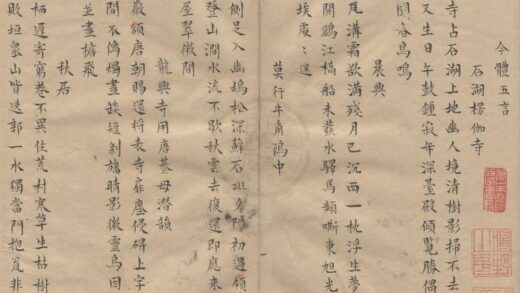 今體五言
石湖楞伽寺
寺占石湖上地幽人境清樹影掃不去
又生日午鼓鍾寂年深臺殿傾覽勝偶
閒谷鳥鳴
晨興
瓦溝霜欲滿殘月已沉西一枕浮生夢
江橋船未發水驛馬頻嘶東旭光
埃處〻迷
莫行牛角隖中
側足入幽塢松深蘚石斑夕陽初過嶺
登山澗水流不歇秋雲去復還即應來
屋翠微間
龍興寺用唐綦母潛韻
巖額唐朝賜還將表寺扉塵侵碑上字
間衣漏燭晝燄短刹旛晴影微靈鳥因
並畫檐飛
秋居
栖遲寄窮巷不異住荒村寒草生枯樹
敗垣衆山皆遶郭一水獨當門抱瓮非